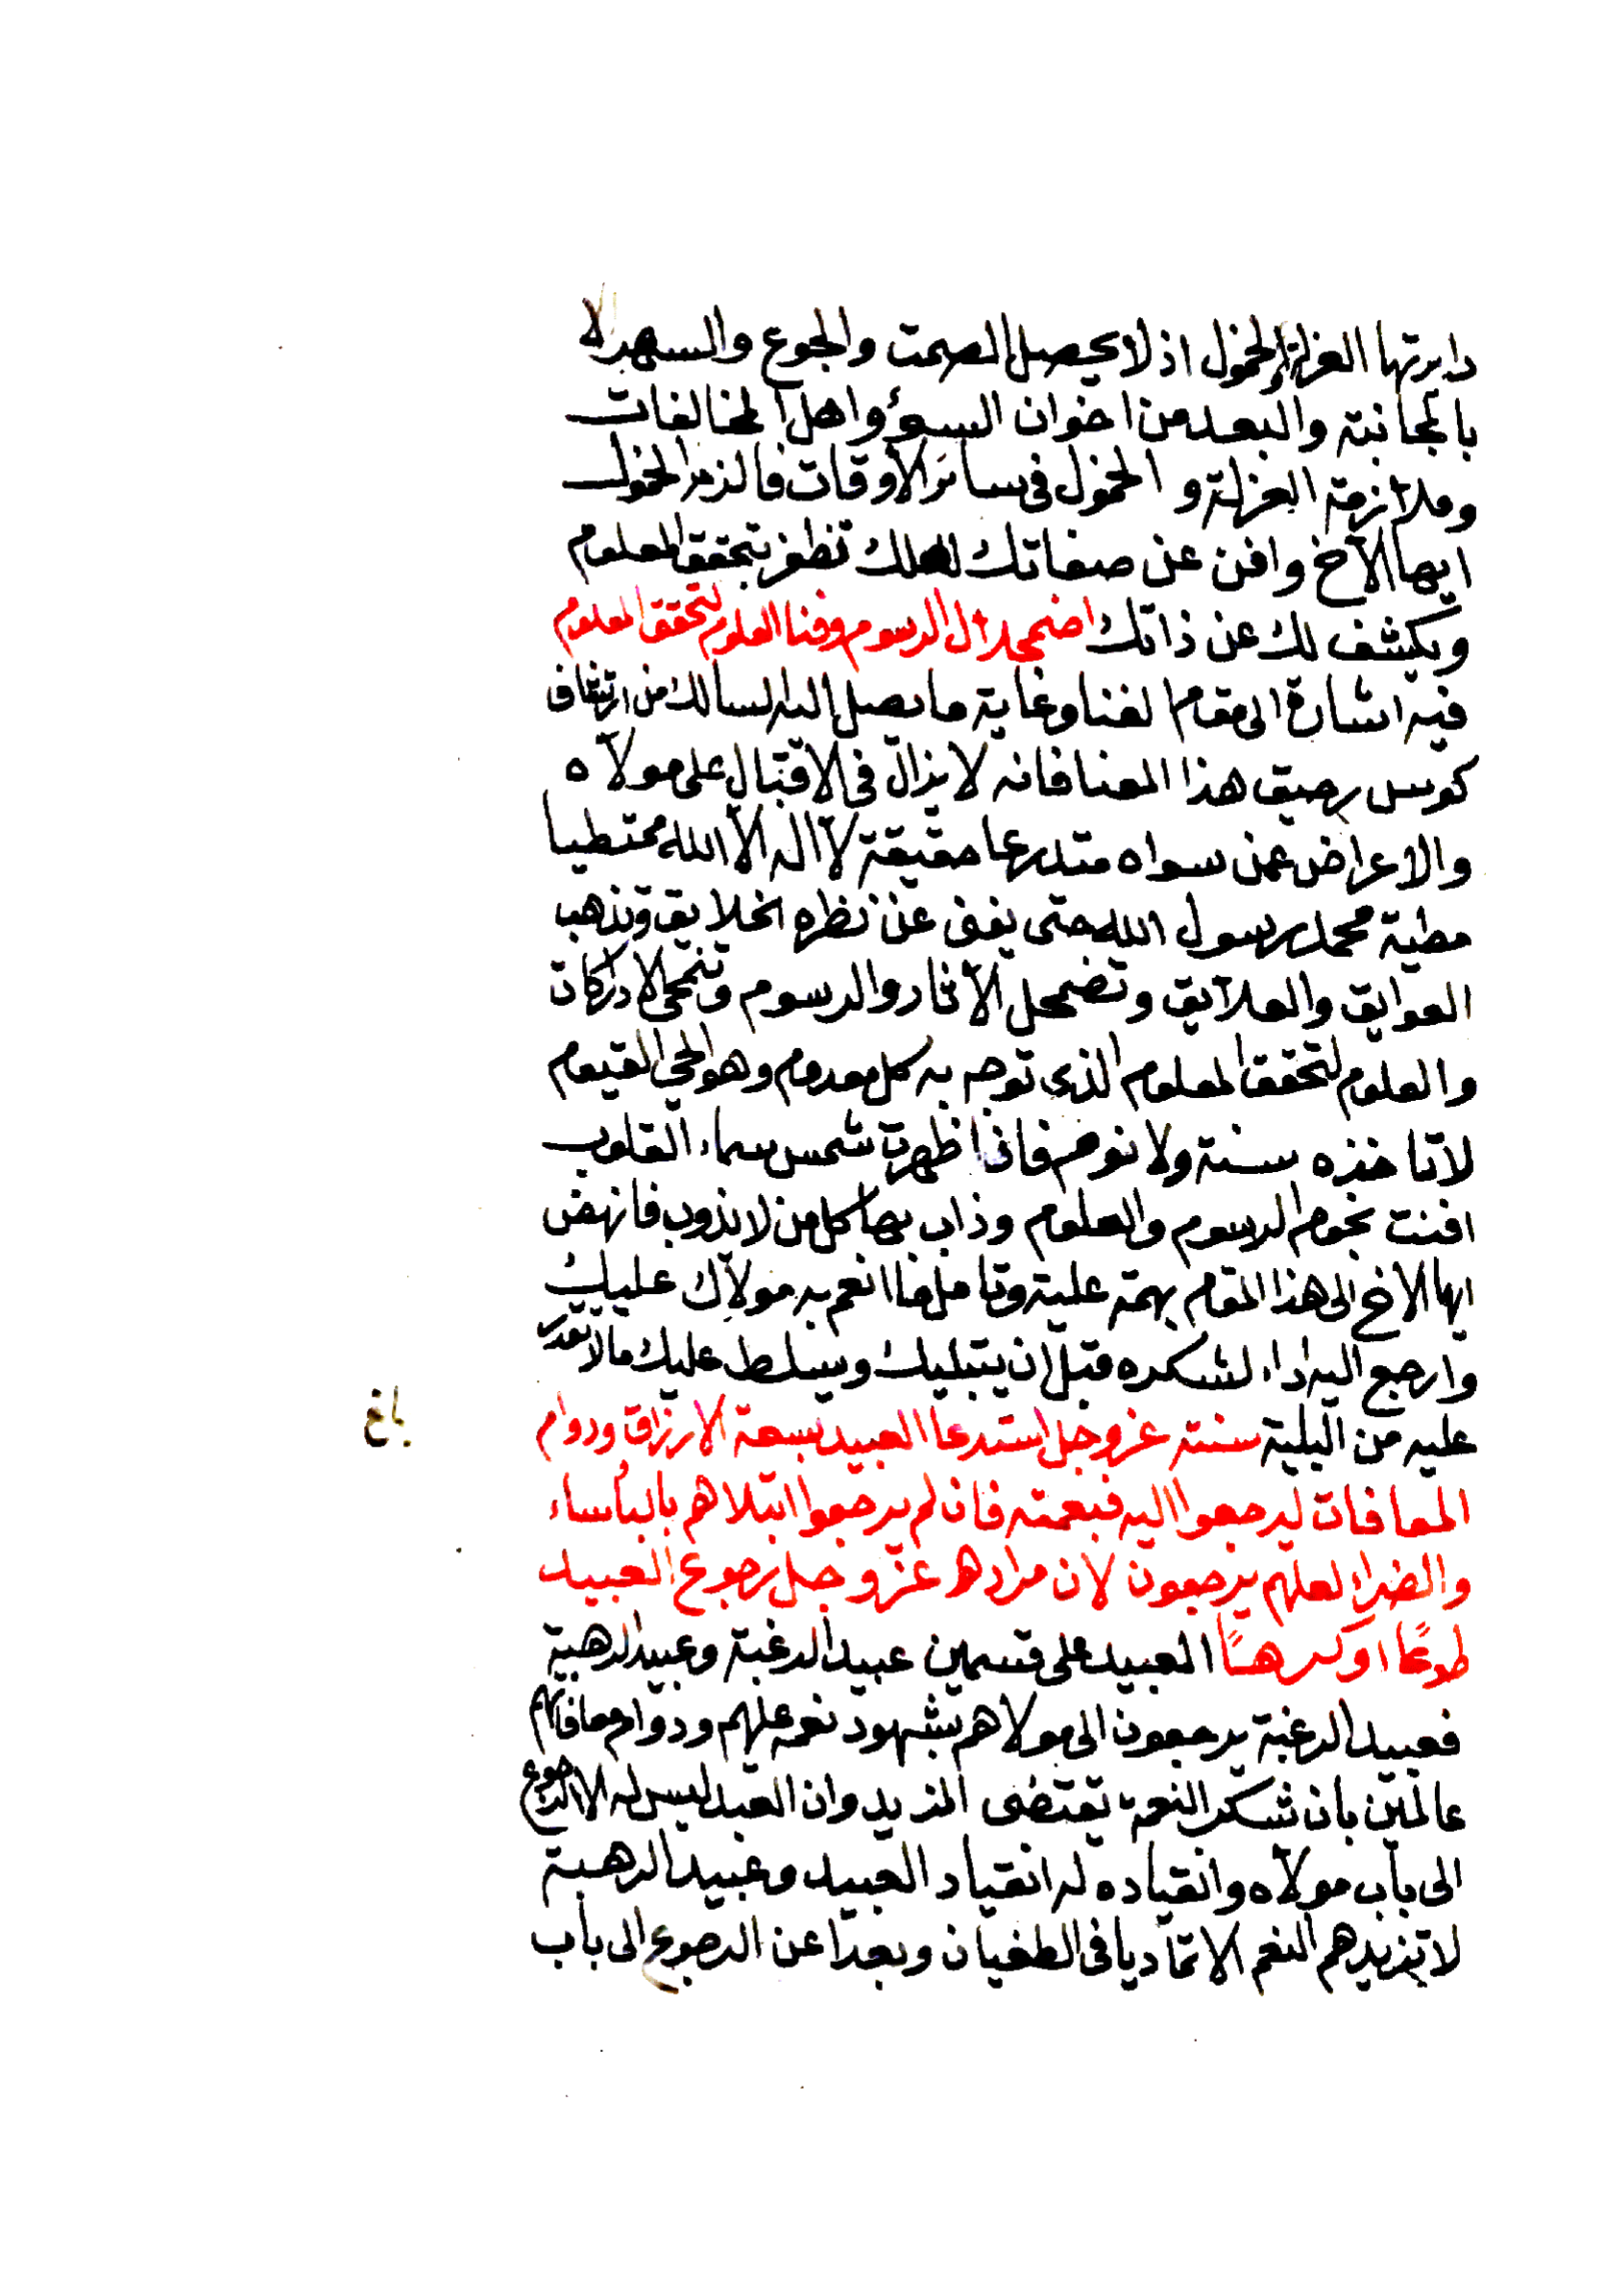 دايرتها العزلة والخمول اذ لا يحصل الصمت والجوع والسهر الا
بالمجانبة والبعد من اخوان السوء واهل المخالفات
وملازمة العزلة و الخمول فى سائر الأوقات فالزم الخمول
ايها الاخ وافن عن صفاتك لعلك تظفر بتحقق المعلوم
ويكشف لك عن ذاتك اضمحلال الرسوم وفنا العلوم لتحقق المعلوم
فيه اشارة الى مقام الفنا وغاية ما يصل اليه السالك من ارتشاف
كوس رحيق هذا المعنا فانه لا يزال فى الاقبال على مولاه
والاعراض عمن سواه متدرعا حقيقة لا اله الا الله ممتطيا
مطية محمد رسول الله حتى يفنى عن نظره الخلايق وتذهب
العوايق والعلايق وتضمحل الاثار والرسوم وتنمحى الادراكات
والعلوم لتحقق المعلوم الذى توجه به كل معدوم وهو الحي القيوم
لا تاخذه سنة ولا نوم فاذا ظهرت شمس سماء القلوب
افنت نجوم الرسوم والعلوم وذاب بها كل من لا يذوب فانهض
ايها الاخ الى هذا المقام بهمة علية وتامل ما انعم به مولاك عليك
وارجع اليه اداء لشكره قبل ان يبتليك ويسلط عليك مالا تقدر
عليه من البلية سنته عز وجل استدعا العبيد بسعة الارزاق ودوام
المعافات ليرجعوا اليه فبعمته فان لم يرجعوا ابتلاهم بالبأساء
والضراء لعلهم يرجعون لان مراده عز وجل رجوع العبيد
طوعًا او كرهًا العبيد على قسمين عبيد الرغبة وعبيد الرهبة
فعبيد الرغبة يرجعون الى مولاهم بشهود نعمه عليهم ودوام معافاتهم
عالمين بان شكر النعمة تقتضى المزيد وان العبد ليس له الا الرجوع
الى باب مولاه وانقياده له انقياد العبيد وعبيد الرهبة
لا تزيدهم النعم الا تماديا فى الطغيان وبعدا عن الرجوع الى باب